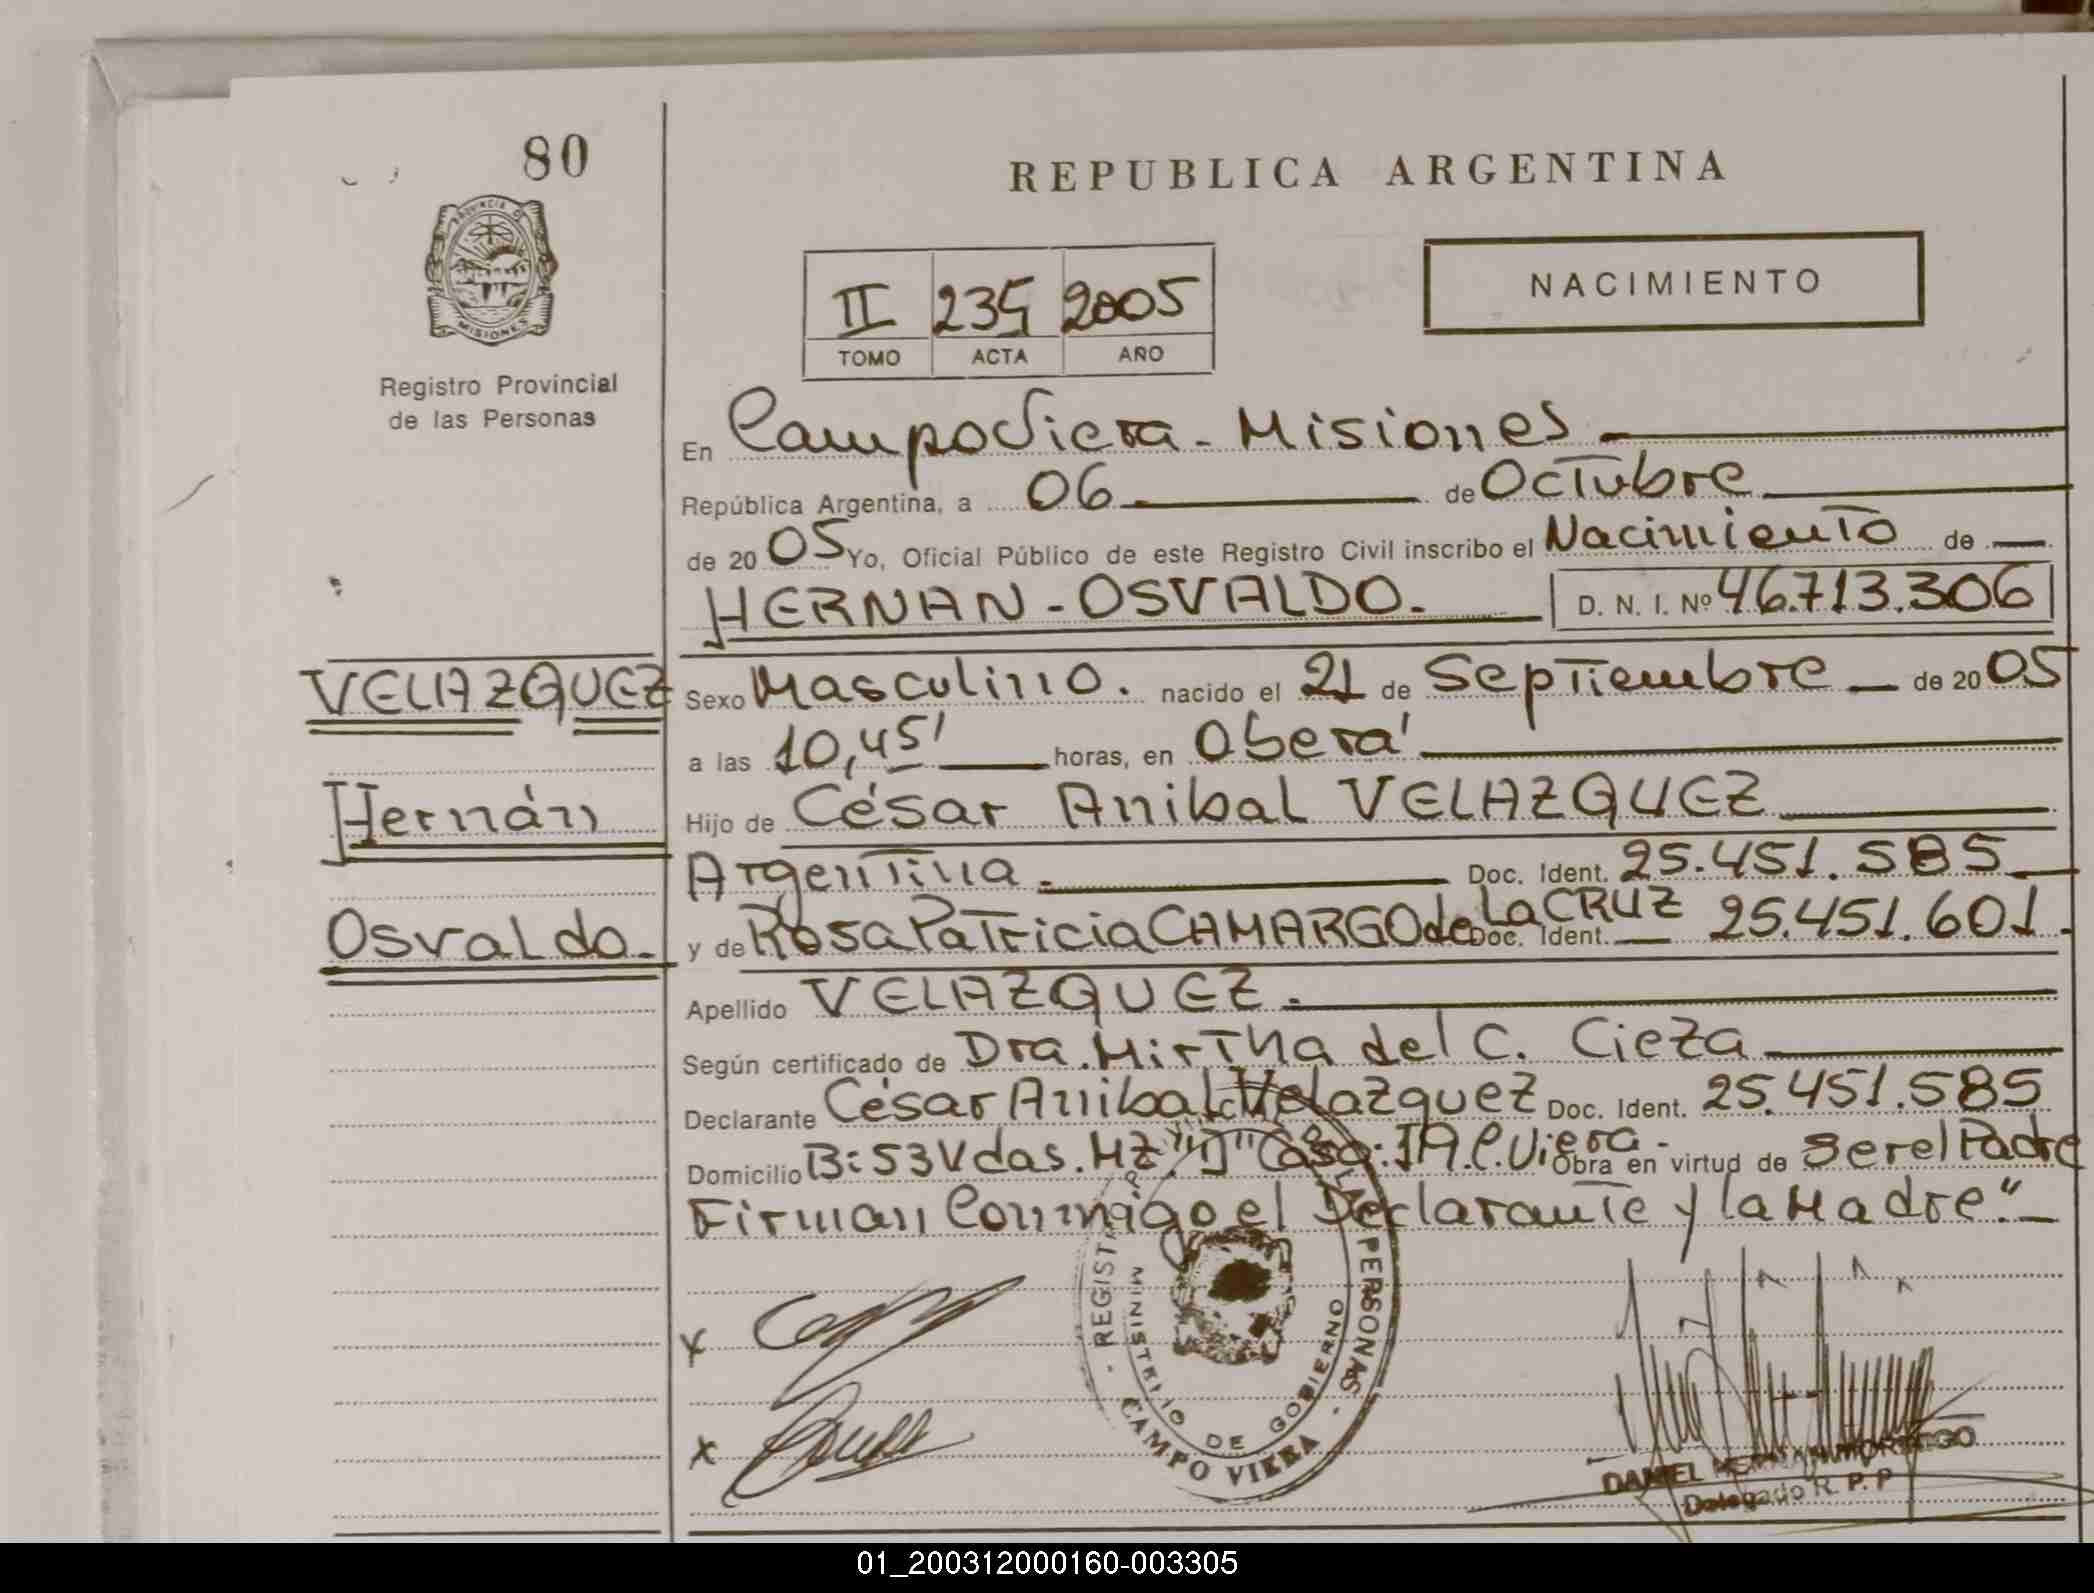 80
REPUBLICA ARGENTINA
PROVINCIA DE
MISIONES
Registro Provincial
de las Personas
II 235 2005
TOMO ACTA AÑO
NACIMIENTO
En Campo Viera - Misiones.
República Argentina, a 06 de Octubre
de 2005 Yo, Oficial Público de este Registro Civil inscribo el Nacimiento de
HERNAN - OSVALDO. D. N. I. Nº 46.713.306
VELAZQUEZ
Hernán
Osvaldo.
Sexo Masculino. nacido el 21 de Septiembre de 2005
a las 10,45' horas, en Oberá
Hijo de César Anibal VELAZQUEZ
Argentina. Doc. Ident. 25.451.585
y de Rosa Patricia CAMARGO de La CRUZ Doc. Ident. 25.451.601.
Apellido VELAZQUEZ.
Según certificado de Dra. Mirtha del C. Cieza
Declarante César Anibal Velazquez Doc. Ident. 25.451.585
Domicilio B: 53 Vdas. Mz. "D" Casa: C. Viera. Obra en virtud de Ser el Padre
Firman Conmigo el Declarante y la Madre".
x
x
REGIST PERSONAS
MINISTERIO DE GOBIERNO
CAMPO VIERA
DANIEL
Delegado R. P. P
01_200312000160-003305